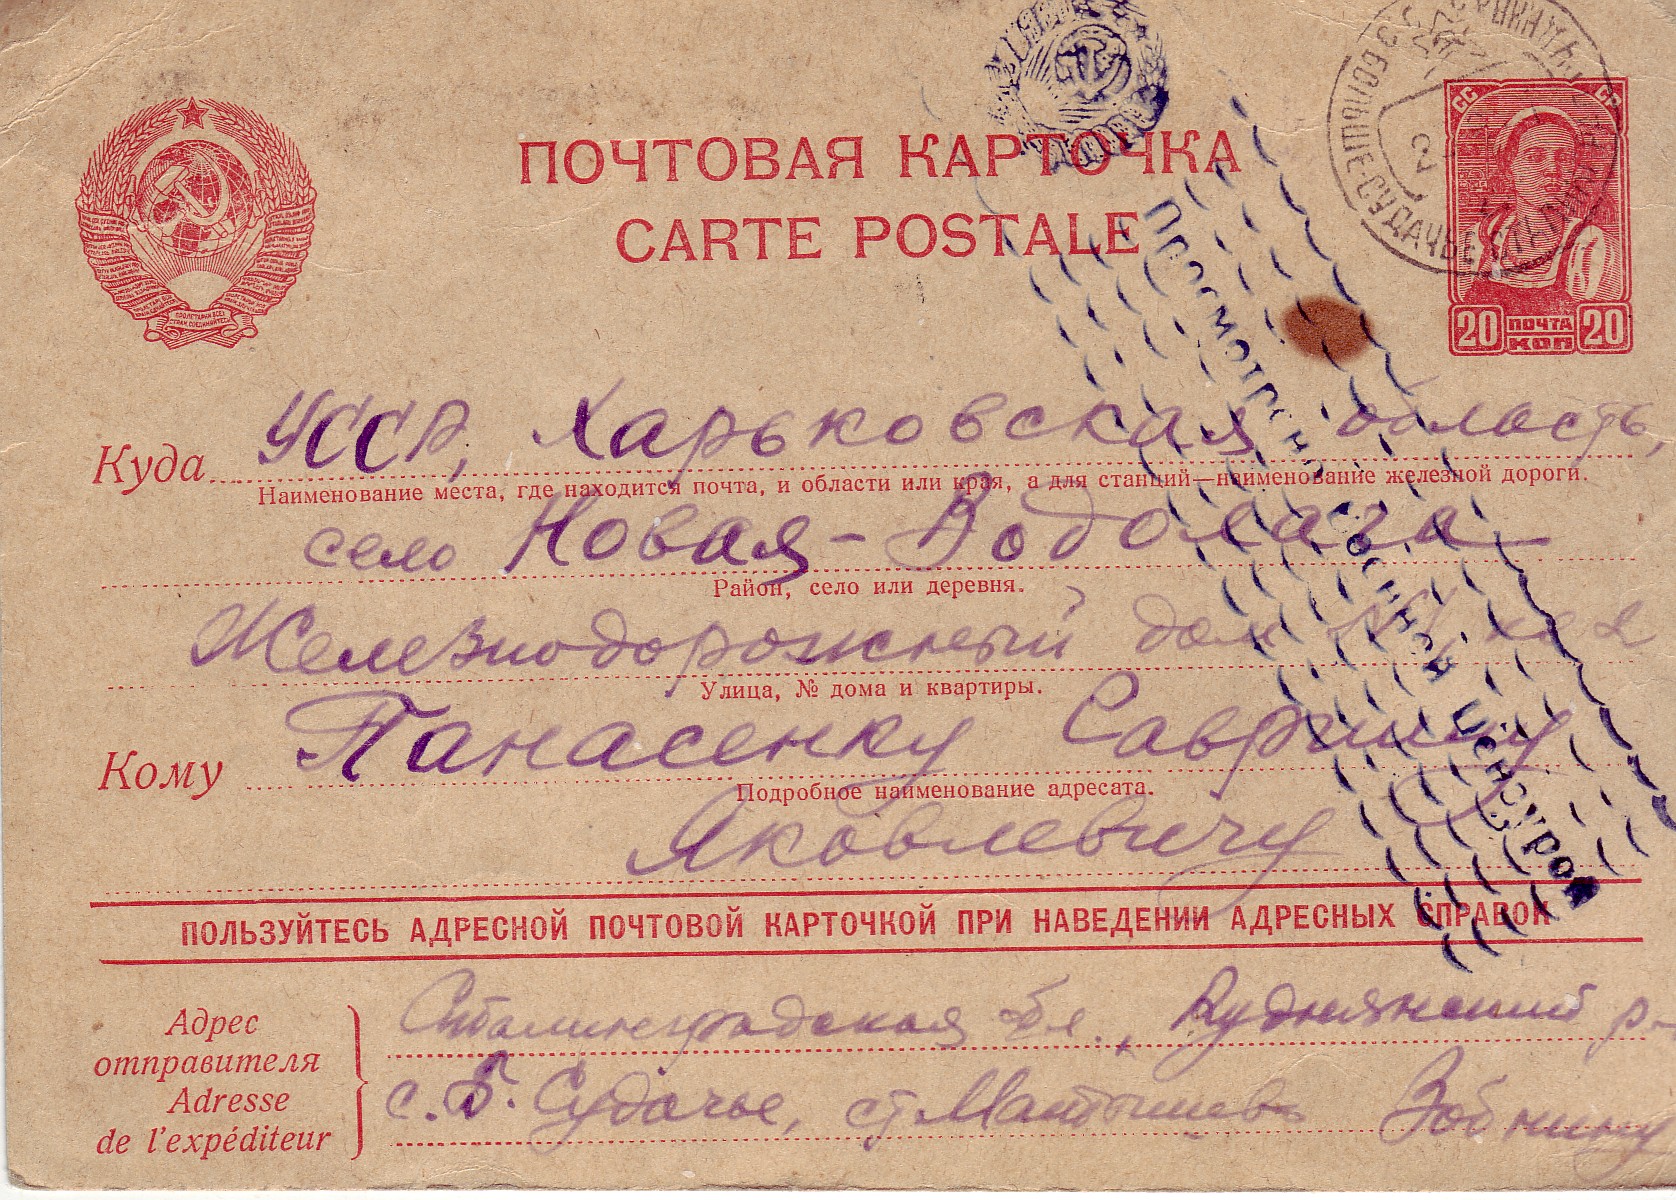 ПОЧТОВАЯ КАРТОЧКА
CARTE POSTALE
СС СР
20 ПОЧТА КОП 20
ПРОЛЕТАРИИ ВСЕХ
СТРАН СОЕДИНЯЙТЕСЬ
Просмотрено
Военной Цензурой
СУДАЧЬЕ
Куда УССР, Харьковская область,
Наименование места, где находится почта, и области или края, а для станций—наименование железной дороги.
село Новая-Водолага
Район, село или деревня.
Железнодорожный дом
Улица, № дома и квартиры.
Кому Панасенку
Подробное наименование адресата.
Яковлевичу
ПОЛЬЗУЙТЕСЬ АДРЕСНОЙ ПОЧТОВОЙ КАРТОЧКОЙ ПРИ НАВЕДЕНИИ АДРЕСНЫХ СПРАВОК
Адрес
отправителя
Adresse
de l'expéditeur
Сталинградская обл., Руднянский р-
с. Б. Судачье, ст. Матышево